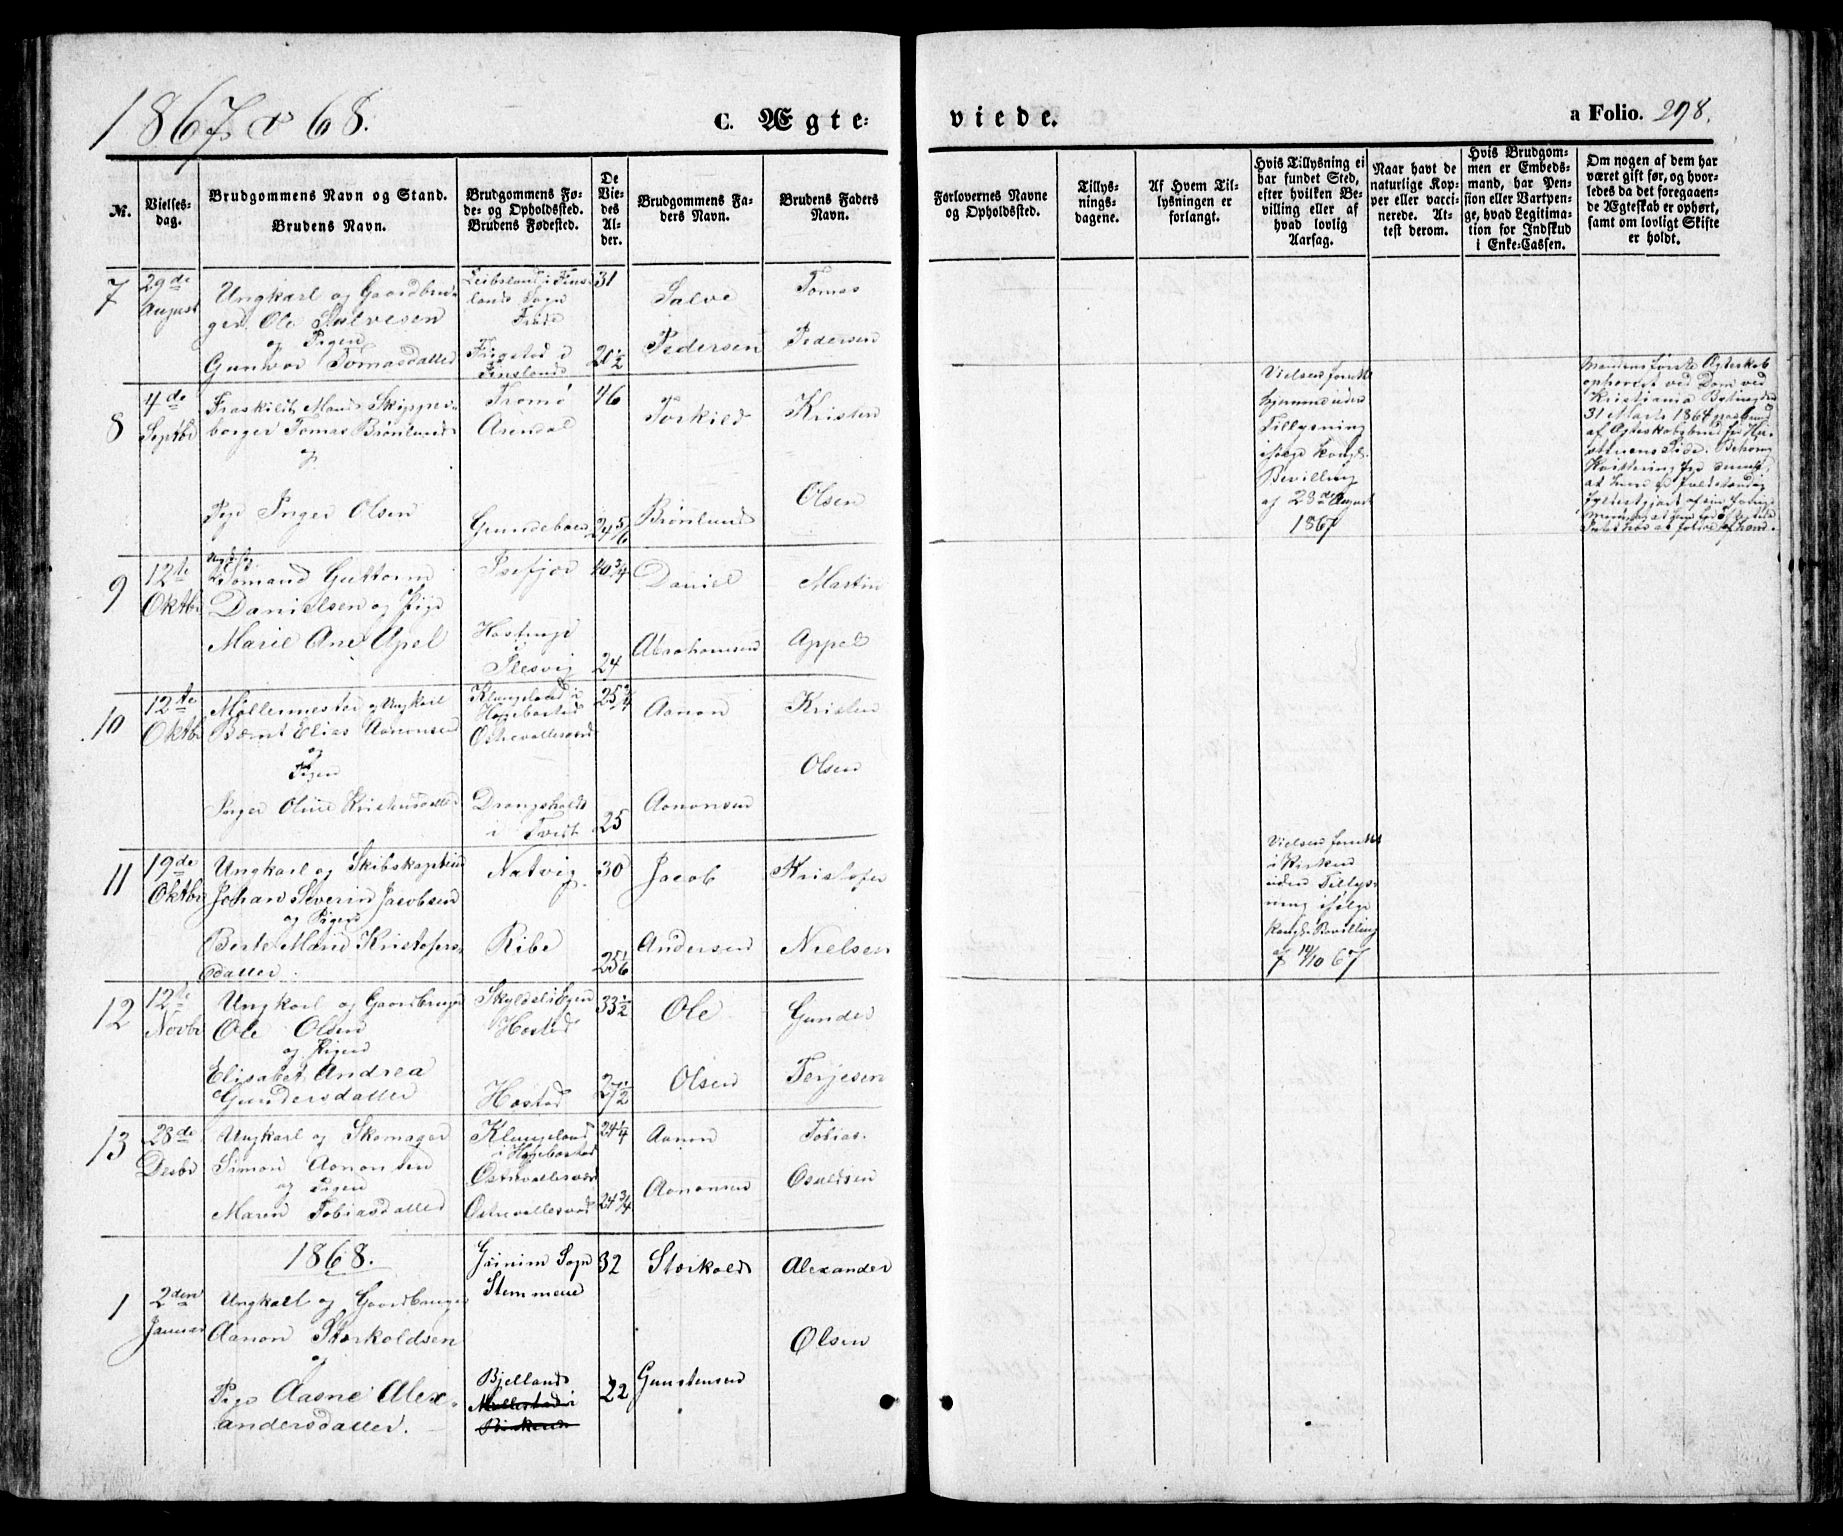 1867 & 68.
C. Ægte-
viede.
a Folio. 298.
№.
Vielses-
dag.
Brudgommens Navn og Stand.
Brudens Navn.
Brudgommens Fø-
de- og Opholdssted.
Brudens Fødested.
De
Vie-
des
Al-
der.
Brudgommens Fa-
ders Navn.
Brudens Faders
Navn.
Forlovernes Navne
og Opholdssted.
Tillys-
nings-
dagene.
Af Hvem Til-
lysningen er
forlangt.
Hvis Tillysning ei
har fundet Sted,
efter hvilken Be-
villing eller af
hvad lovlig
Aarsag.
Naar havt de
naturlige Kop-
per eller vacci-
nerede. At-
test derom.
Hvis Brudgom-
men er Embeds-
mand, har Pen-
sion eller Vartpen-
ge, hvad Legitima-
tion for Indskud
i Enke-Cassen.
Om nogen af dem har
været gift før, og hvor-
ledes da det foregaaen-
de Ægteskab er ophørt,
samt om lovligt Skifte
er holdt.
7
29de
August
Ungkarl og Gaardbru-
ger Ole Salvesen
og Pigen
Gunvor Tomasdatter
Leibsland i Fins-
lands Sogn
Frigstad i
Finsland
31
20½
Salve
Pedersen
Tomas
Pedersen
8
4de
Septbr
Fraskildt Mand Skipper-
borger Tomas Brønlund
og
Pige Inger Olsen
Tromø
Arendal
46
24 5/6
Torkild
Brønlund
Kristen
Olsen
Vielsen forrettet
hjemme uden
Tillysning
ifølge kongl.
Bevilling
af 23de August
1867
Mandens første Ægteskab
ophævet ved Dom ved
Kristiania
31 Marts 1864
9
12te
Oktbr
Guttorm
Danielsen og Pige
Marie Ane Apel
Isefjær
Slesvig
40¾
24
Daniel
Abrahamsen
Martin
Appel
10
12te
Oktbr
Møllermester og Ungkarl
Bernt Elias Aanonsen
og
Pigen
Inger Oline Kristensdatter
Klungeland i
Hægebostad
Østrevallesverd
Drangsholt
i Tveit
25¾
25
Aanon
Aanonsen
Kristen
Olsen
11
19de
Oktbr
Ungkarl og Skibskaptein
Johan Severin Jacobsen
og Pigen
Berte Marie Kristofers-
datter
Natvig
Ribe
30
25 1/6
Jacob
Andersen
Kristofer
Nielsen
Vielsen forrettet
i Kirken
uden Tillys-
ning ifølge
kongl. Bevilling
af 14/10 67
12
12te
Novbr
Ungkarl og Gaardbruger
Ole Olsen
og Pigen
Elisabet Andrea
Gundersdatter
Hostad
Hostad
33½
27½
Ole
Olsen
Gunder
Terjesen
13
28de
Desbr
Ungkarl og Skomager
Simon Aanonsen
og Pigen
Maren Tobiasdatter
Klungeland
i Hægebostad
Østrevallesverd
Østrevallesverd
24¼
24¾
Aanon
Aanonsen
Tobias
Osuldsen
1868.
1
2den
Januar
Ungkarl og Gaardbruger
Aanon Storkoldsen
og
Pige Aasne Alex-
andersdatter.
Sogn
Stemmene
Bjelland
32
22
Storkold
Gunstensen
Alexander
Olsen